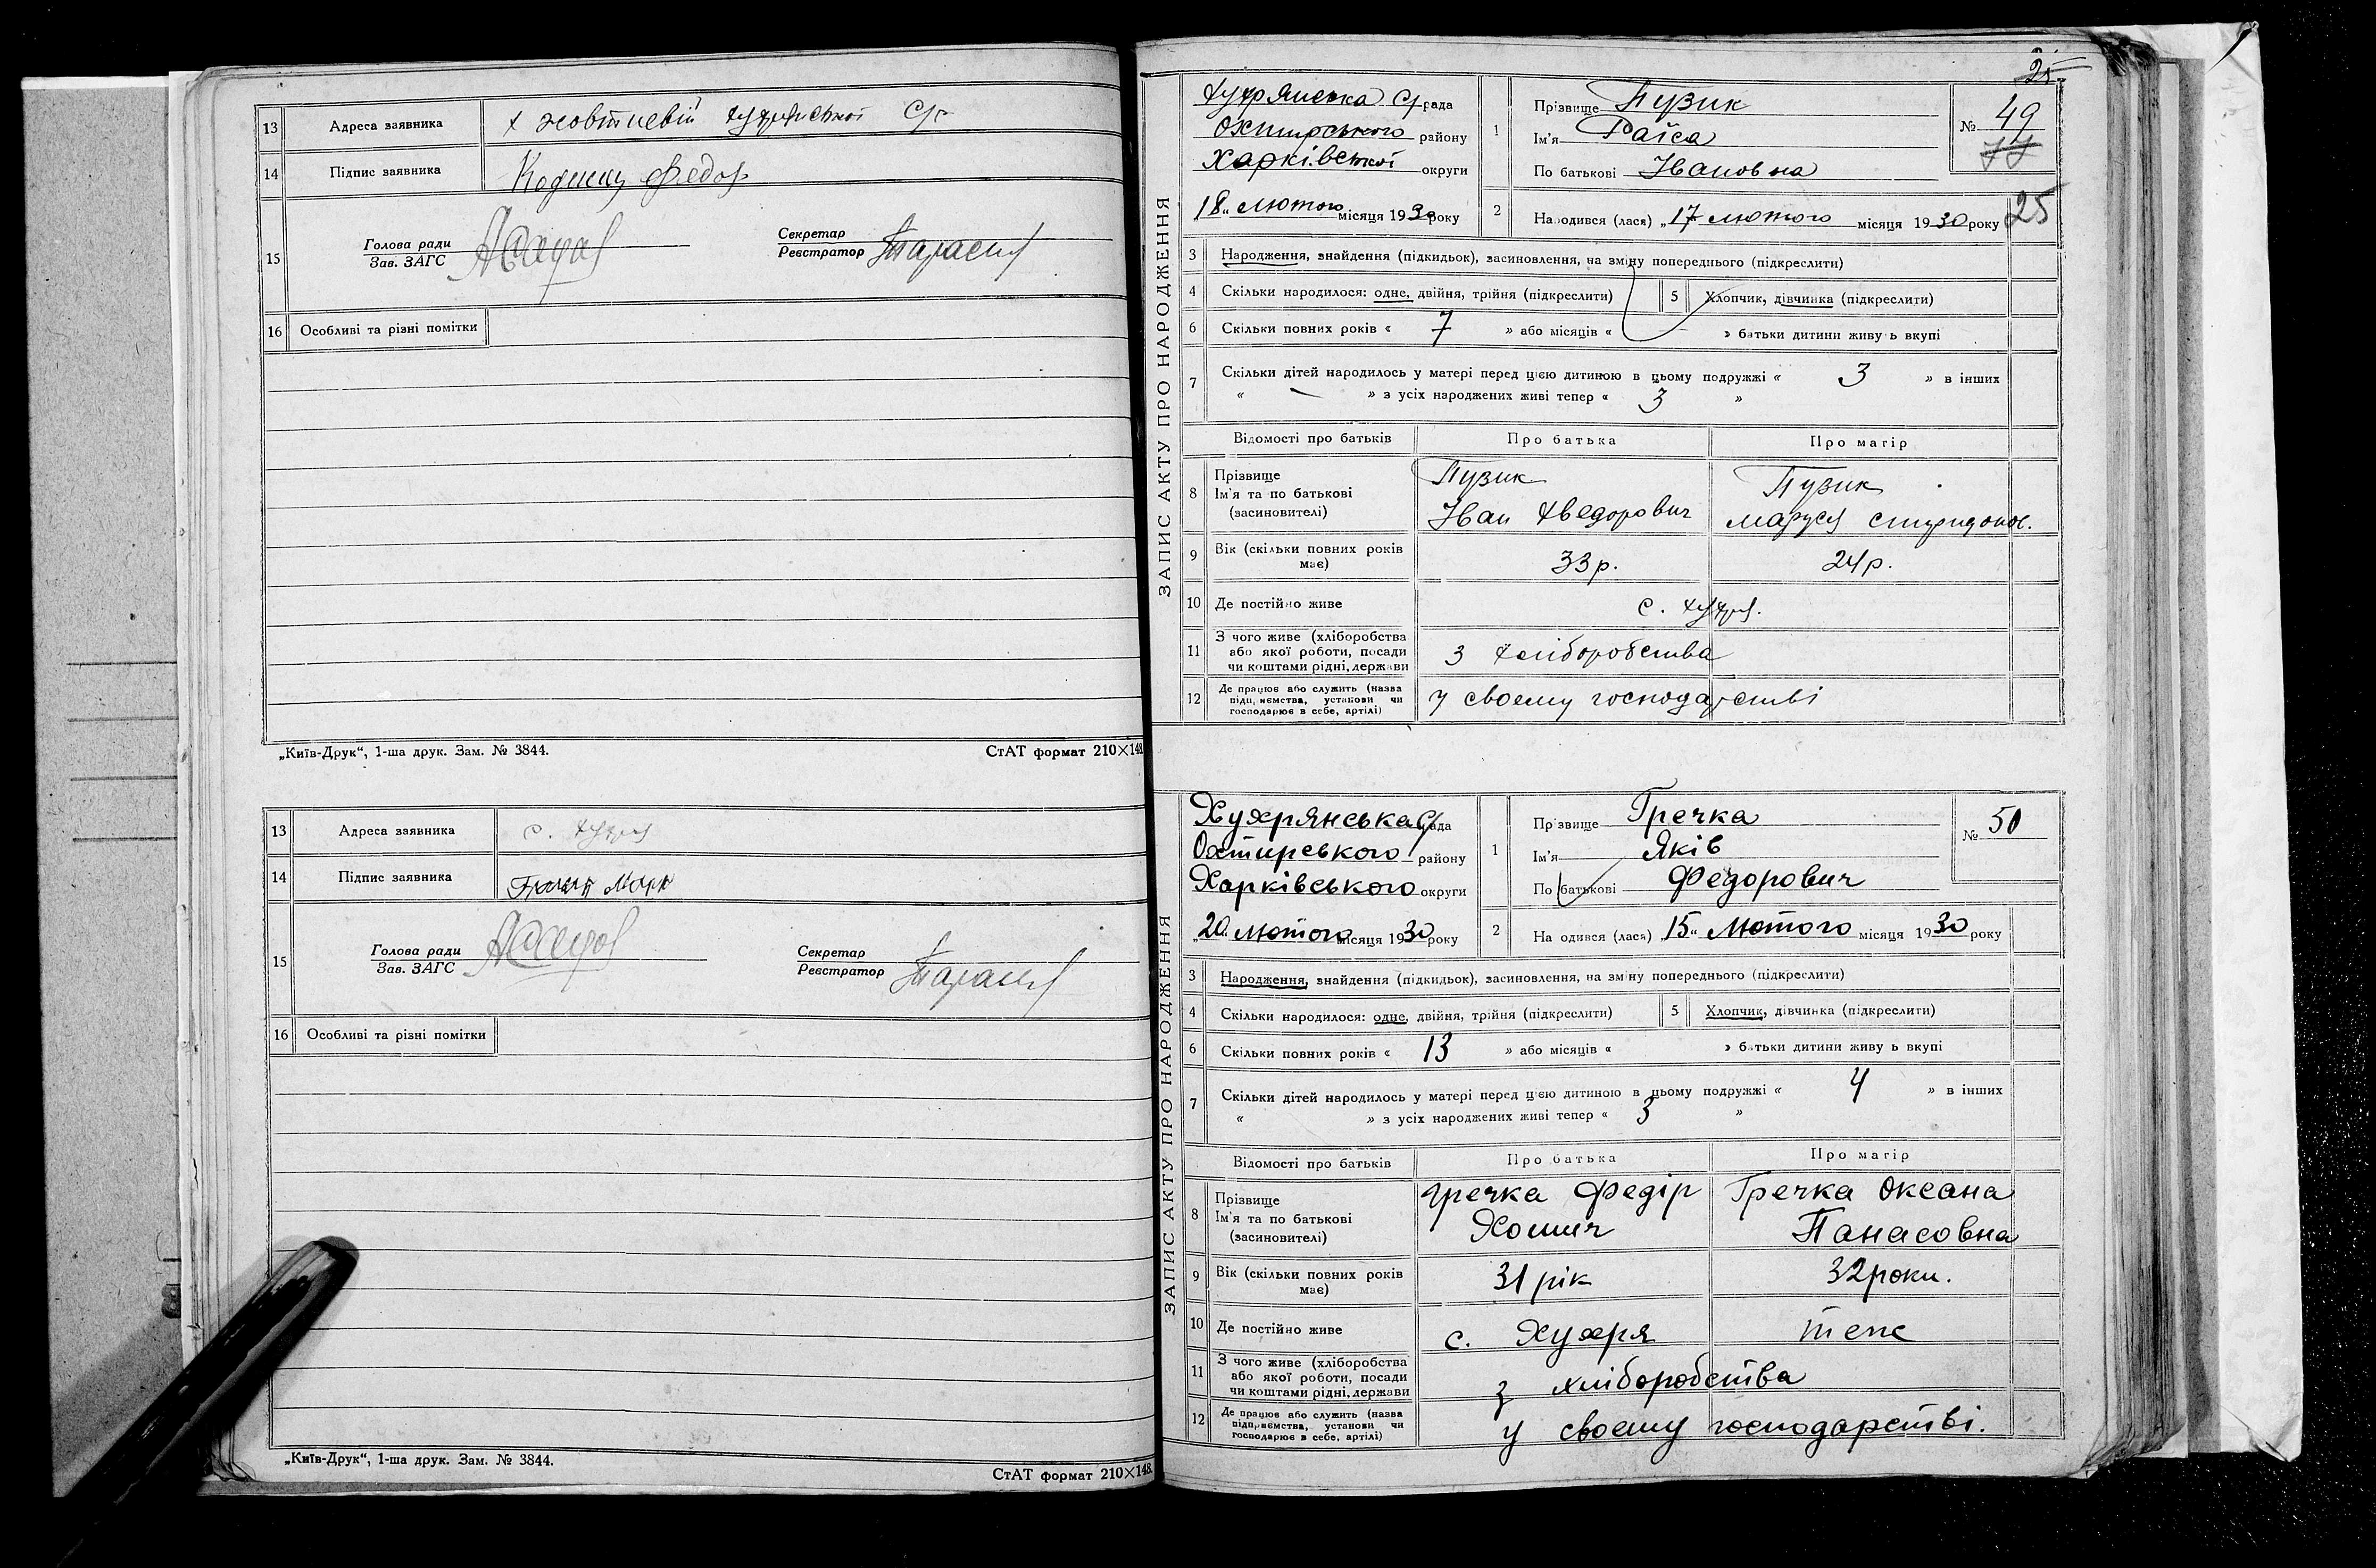 13 Адреса заявника х жовтневій Хухрянської С/р
14 Підпис заявника Федор
15 Голова ради Секретар
Зав. ЗАГС Реєстратор
16 Особливі та різні помітки
„Київ-Друк“, 1-ша друк. Зам. № 3844. СтАТ формат 210×148.
13 Адреса заявника с. Хухря
14 Підпис заявника
15 Голова ради Секретар
Зав. ЗАГС Реєстратор
16 Особливі та різні помітки
„Київ-Друк“, 1-ша друк. Зам. № 3844. СтАТ формат 210×148.
25
ЗАПИС АКТУ ПРО НАРОДЖЕННЯ
Хухрянська С/рада
Охтирського району
Харківської округи
18 „ лютого місяця 1930 року
1 Прізвище Пузик
Ім'я Раїса
По батькові Івановна
№ 49
77
2 Народився (лася) „17 лютого місяця 1930 року
25
3 Народження, знайдення (підкидьок), засиновлення, на зміну попереднього (підкреслити)
4 Скільки народилося: одне, двійня, трійня (підкреслити) 5 Хлопчик, дівчинка (підкреслити)
6 Скільки повних років « 7 » або місяців « — » батьки дитини живуть вкупі
7 Скільки дітей народилось у матері перед цією дитиною в цьому подружжі « 3 » в інших
« — » з усіх народжених живі тепер « 3 »
Відомості про батьків Про батька Про матір
8 Прізвище Ім'я та по батькові (засновителі)
Пузик Пузик
Іван Хведорович Маруся Спиридонов.
9 Вік (скільки повних років має) 33 р. 24 р.
10 Де постійно живе с. Хухря.
11 З чого живе (хліборобства або якої роботи, посади чи коштами рідні, держави з хліборобства
12 Де працює або служить (назва підприємства, установи чи господарює в себе, артілі) у своему господарстві
ЗАПИС АКТУ ПРО НАРОДЖЕННЯ
Хухрянська С/рада
Охтирського району
Харківського округи
„20 „ Лютого місяця 1930 року
1 Прізвище Гречка
Ім'я Яків
По батькові Федорович
№ 50
2 Народився (лася) „15 „ Лютого місяця 1930 року
3 Народження, знайдення (підкидьок), засиновлення, на зміну попереднього (підкреслити)
4 Скільки народилося: одне, двійня, трійня (підкреслити) 5 Хлопчик, дівчинка (підкреслити)
6 Скільки повних років « 13 » або місяців « » батьки дитини живуть вкупі
7 Скільки дітей народилось у матері перед цією дитиною в цьому подружжі « 4 » в інших
« » з усіх народжених живі тепер « 3 »
Відомості про батьків Про батька Про матір
8 Прізвище Ім'я та по батькові (засиновителі)
Гречка Федір Гречка Оксана
Хомич Панасовна
9 Вік (скільки повних років має) 31 рік 32 роки.
10 Де постійно живе с. Хухря теж
11 З чого живе (хліборобства або якої роботи, посади чи коштами рідні, держави з хліборобства
12 Де працює або служить (назва підприємства, установи чи господарює в себе, артілі) у своему господарстві.